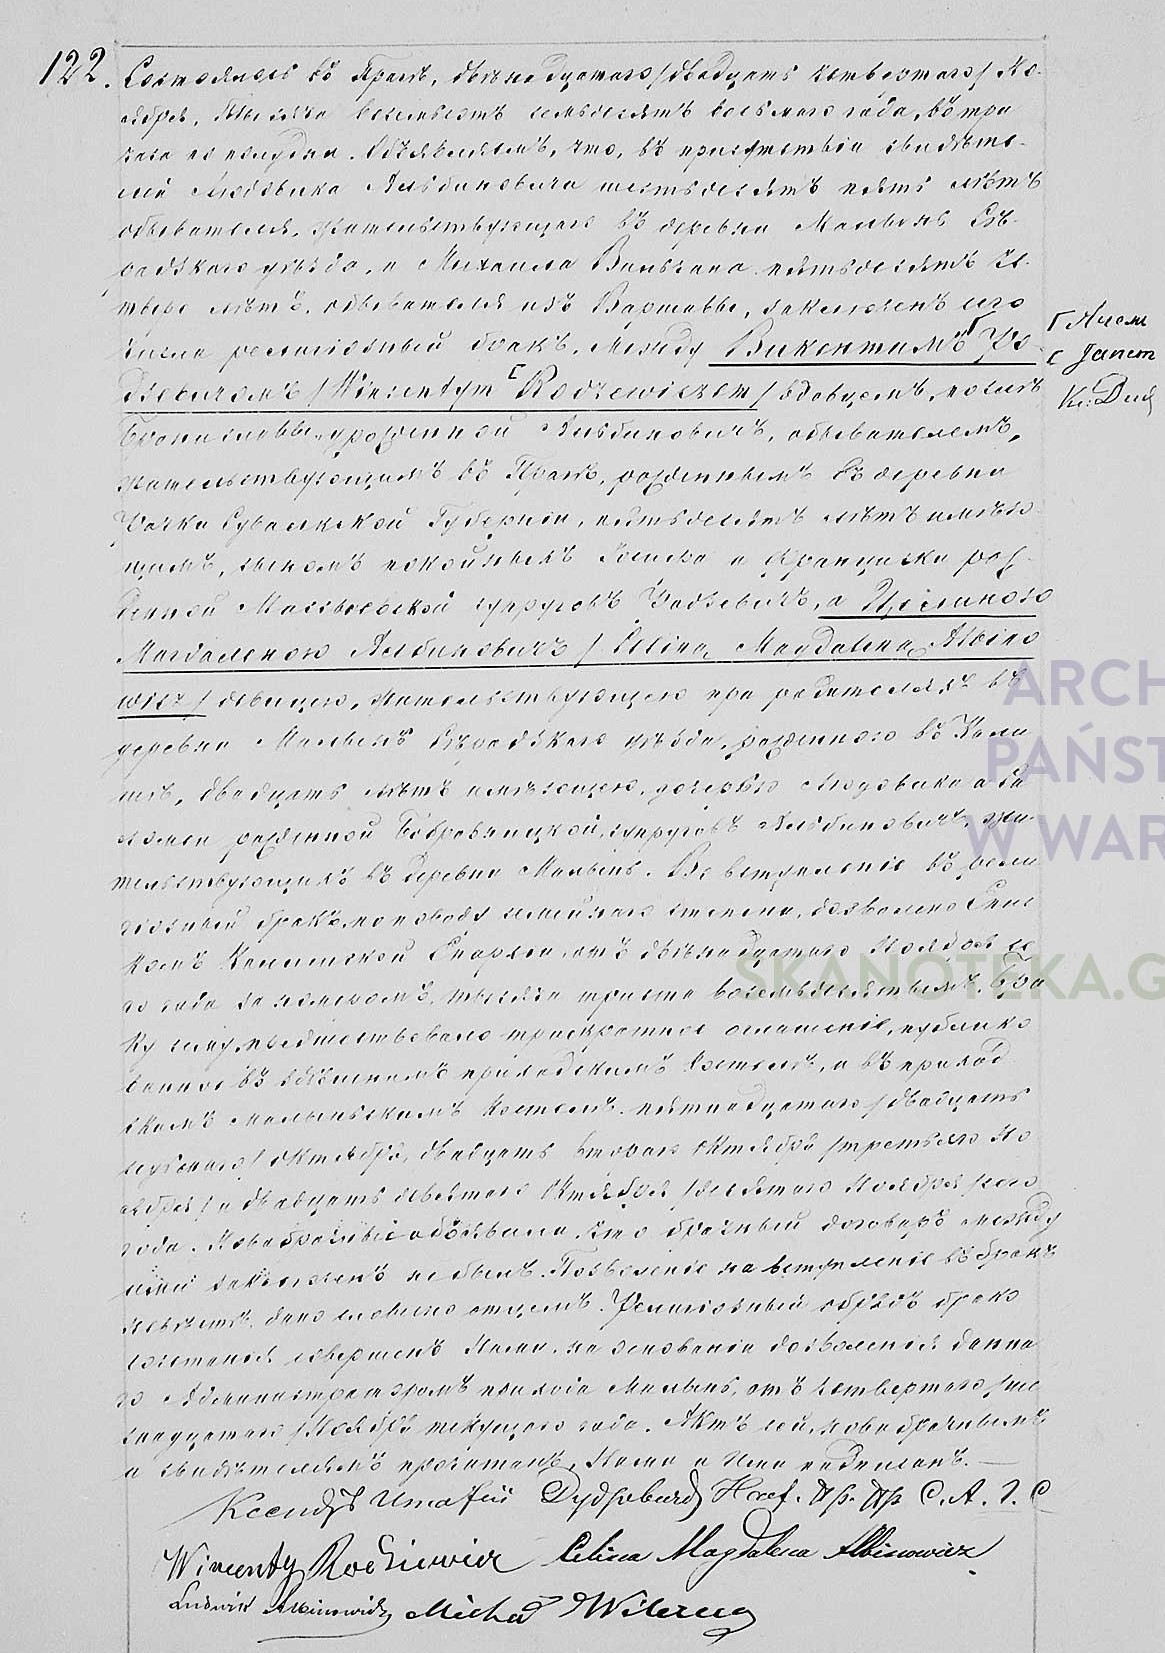 122. Состоялось въ Прагѣ, двѣнадцатаго /двадцать четвертаго/ Но-
ября, тысяча восемьсотъ семьдесятъ восьмаго года, въ три
часа по полудни. Объявляемъ, что, въ присутствіи свидѣте-
лей Людовика Альбиновича шестьдесятъ пять лѣтъ
обывателя, жительствующаго въ деревни Малынь Сѣ-
радзкаго уѣзда, и Михаила пятьдесятъ че-
тыре лѣтъ, обывателя изъ Варшавы, заключенъ сего
числа религіозный бракъ, между Викентимъ Ро-
дзевичемъ /Wincentym Rodziewiczem/ вдовцемъ, послѣ
Брониславы, урожденной Альбиновичъ, обывателемъ,
жительствующимъ въ Прагѣ, рожденнымъ въ деревни
Рачки Сувалкской Губерніи, пятьдесятъ лѣтъ имѣю-
щимъ, сыномъ покойныхъ и Францишки рож-
денной супруговъ Родзевичъ, а Целиною
Магдаленою Альбиновичъ /Celina Magdalena Albino
wicz/ девицею, жительствующею при родителяхъ въ
деревни Малынь Сѣрадзкаго уѣзда, рожденною въ Кали
шѣ, двадцать лѣтъ имѣющею, дочерью Людовика и Са
ломеи рожденной Бобровницкой, супруговъ Альбиновичъ, жи-
тельствующихъ въ деревни Малынь. Во вступленіе въ рели
гіозный бракъ, по поводу степени, дозволено Епис
комъ Епархіи, отъ двѣнадцатаго Ноября се
го года за номеромъ, тысяча триста восемьдесятымъ. Бра
ку сему, предшествовало троекратное оглашеніе, публико
ванное въ здѣшнемъ приходскимъ костелѣ, и въ приход
скимъ Малынскимъ костелѣ пятнадцатаго /двадцать
седьмаго/ Октября, двадцать втораго Октября /третьяго Но
ября/ и двадцать девятаго Октября /десятаго Ноября/ сего
года. Новобрачные объявили, что брачный договоръ между
ними заключенъ не былъ. Позволеніе на вступленіе въ бракъ
невѣстѣ, дано словесно отцемъ. Религіозный обрядъ брако
сочетанія совершенъ Нами, на основаніи дозволенія данна
го Администраторомъ прихода Малынь, отъ четвертаго /шес
тнадцатаго/ Ноября текущаго года. Актъ сей, новобрачнымъ
и свидѣтелямъ прочитанъ, Нами и Ими подписанъ.
Ксендзъ С. А. Г. С
Wincenty Rodziewicz Celina Magdalena Albinowicz
Ludwik Albinowicz Michał
ARCH
PAŃST
W WAR
SKANOTEKA.G